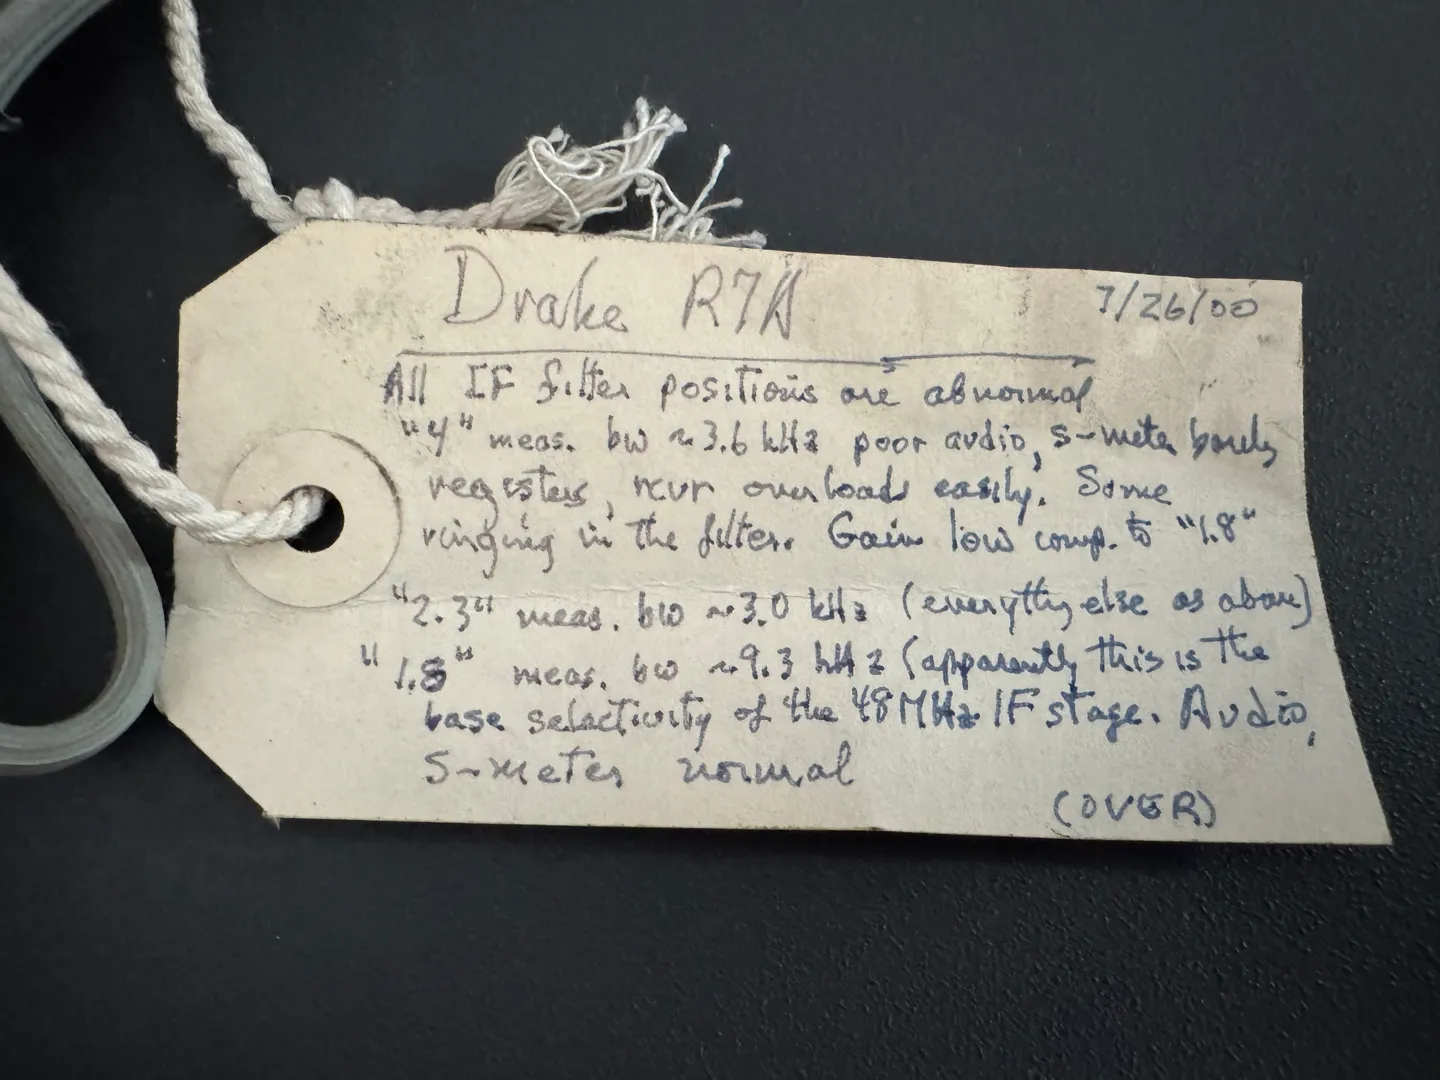 Drake R7A 7/26/00
All IF filter positions are abnormal
"4" meas. bw ~3.6 kHz poor audio, s-meter barely
registers, rcvr overloads easily. Some
ringing in the filter. Gain low comp. to "1.8"
"2.3" meas. bw ~3.0 kHz (everything else as above)
"1.8" meas. bw ~9.3 kHz (apparently this is the
base selectivity of the 48MHz IF stage. Audio,
S-meter normal
(OVER)